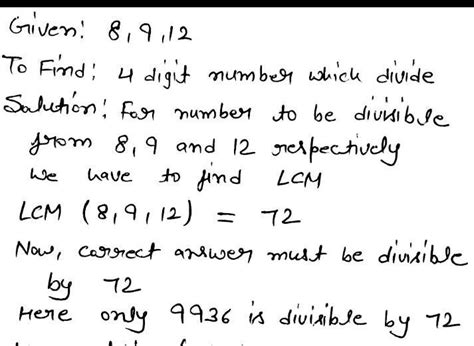 Given: 8, 9, 12
To Find: 4 digit number which divide
Solution: For number to be divisible
from 8, 9 and 12 respectively
we have to find LCM
LCM (8, 9, 12) = 72
Now, correct answer must be divisible
by 72
Here only 9936 is divisible by 72